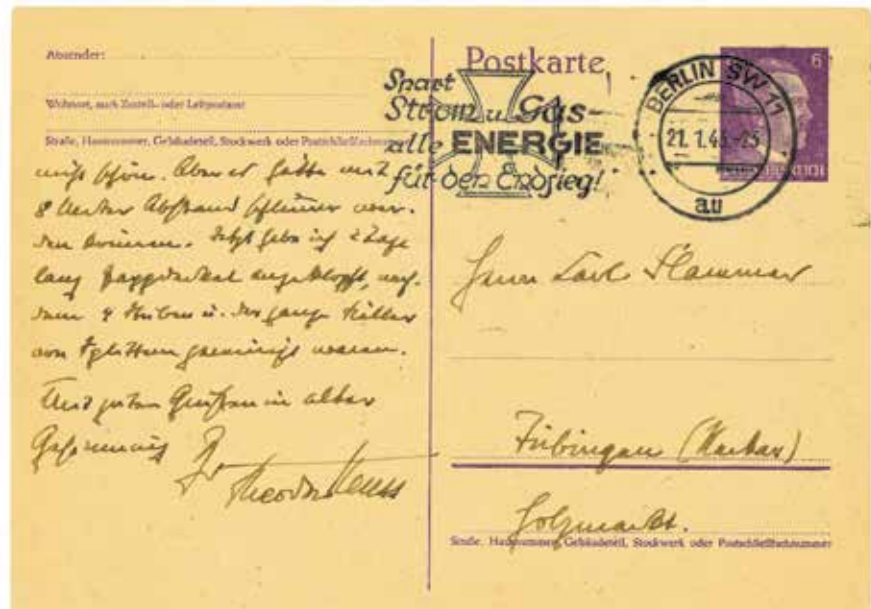 Absender:
Wohnort, auch Zustell- oder Leitpostamt
Straße, Hausnummer, Gebäudeteil, Stockwerk oder Postschließfachnummer
nicht schön. Aber es hätte mit
8 Meter Abstand schlimmer wer-
den können. Jetzt habe ich 2 Tage
lang Pappdeckel angeklopft, nach-
dem 4 Stuben u. der ganze Keller
von Splittern gereinigt waren.
Mit guten Grüßen in alter
Gesinnung
Theodor Heuss
Postkarte
Spart
Strom u. Gas-
alle ENERGIE
für den Endsieg!
BERLIN SW 11
21. 1.
au
6
Herrn Carl
Tübingen (Neckar)
Holzmarkt.
Straße, Hausnummer, Gebäudeteil, Stockwerk oder Postschließfachnummer